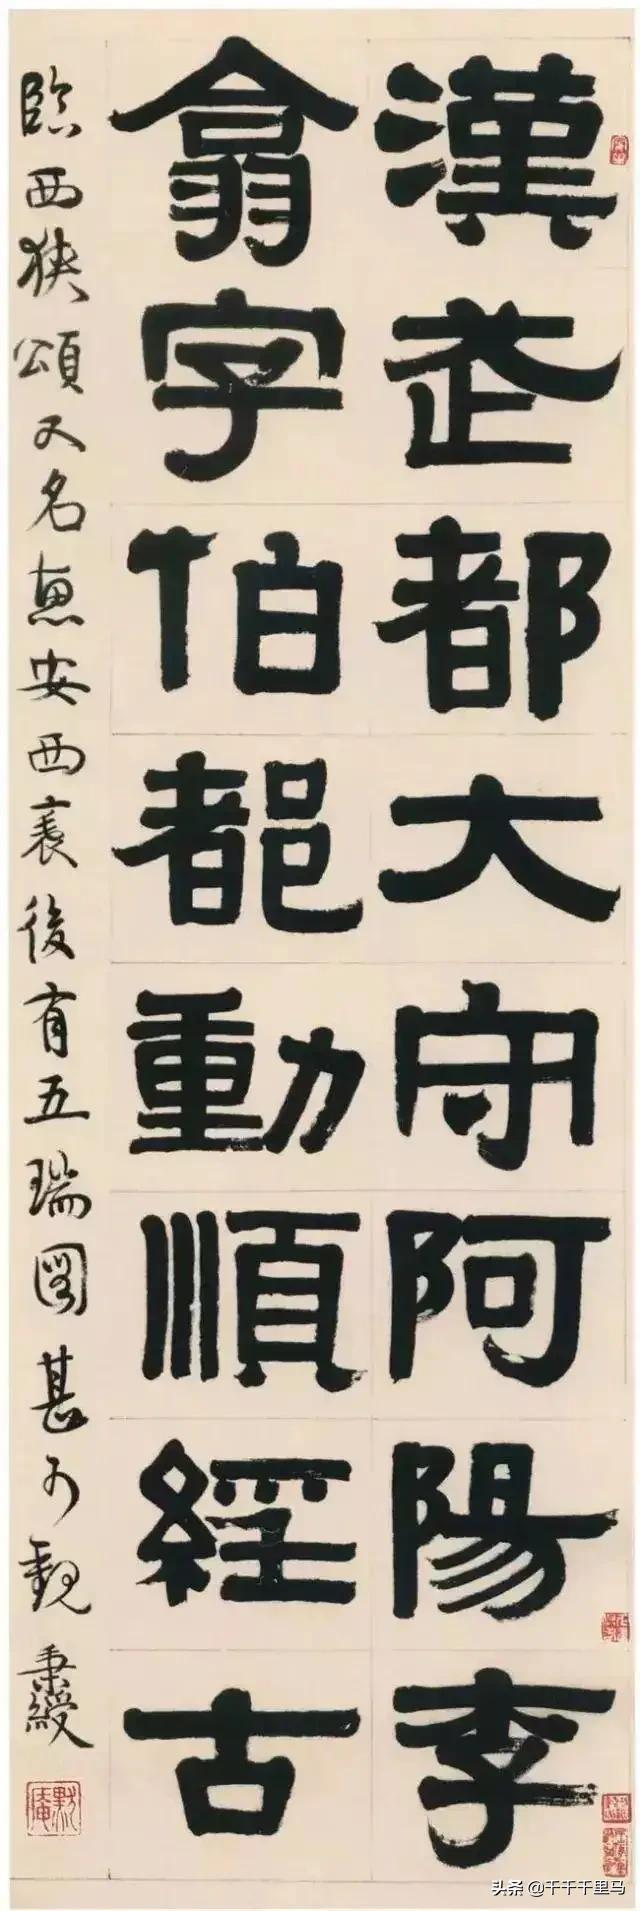 漢武都大守阿陽李
翕字伯都動順經古
臨西狹頌又名惠安西表後有五瑞圖甚可觀 秉綬
默庵
头条 @千千千里马